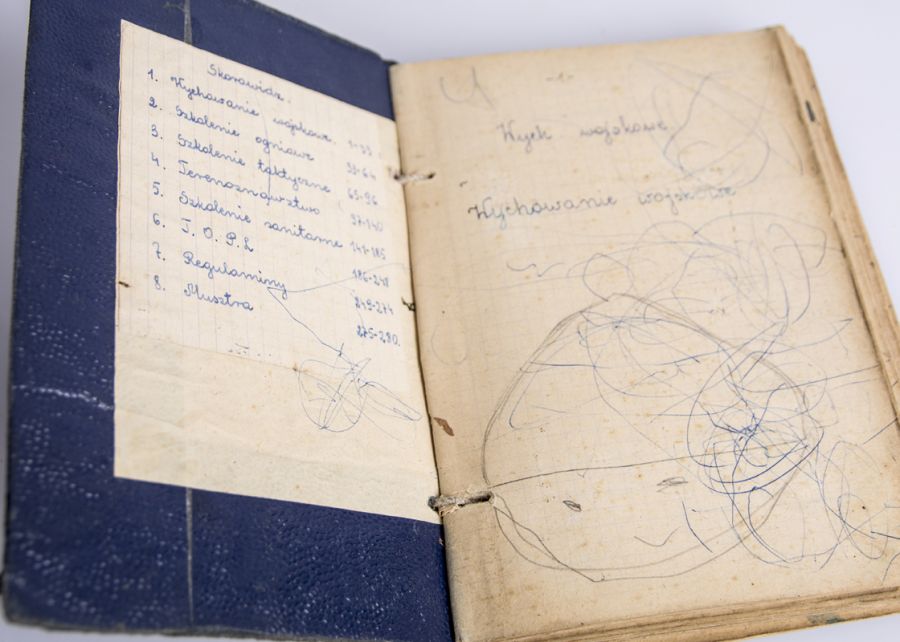 Skorowidz.
1. Wychowanie wojskowe. 1-33
2. Szkolenie ogniowe 33-64
3. Szkolenie taktyczne 65-96
4. Terenoznawstwo 97-140
5. Szkolenie sanitarne 141-185
6. T. O. P. L 186-248
7. Regulaminy 249-274
8. Musztra 275-280.
-1-
Wych wojskowe
Wychowanie wojskowe